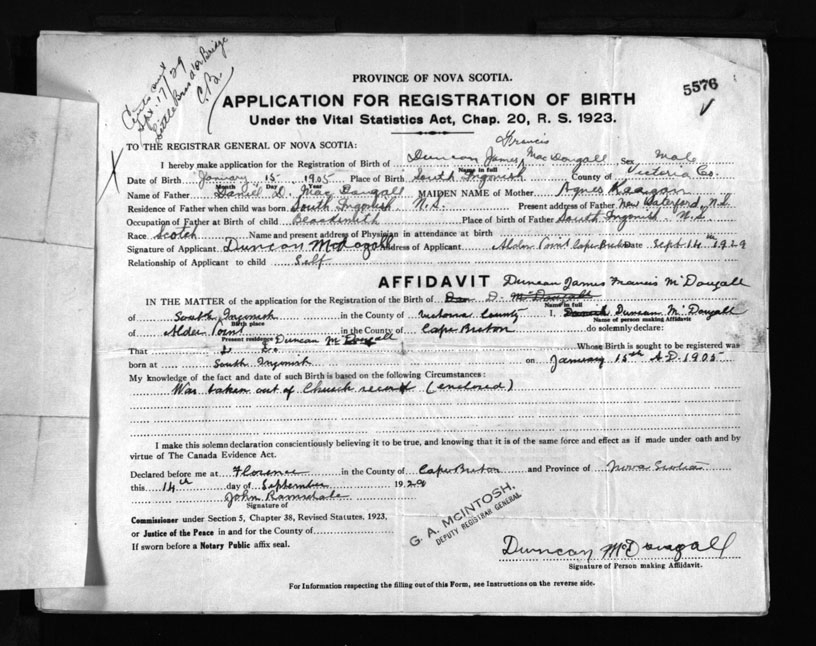 Sept. 17/29
Little Bras d'or Bridge
C.B.
PROVINCE OF NOVA SCOTIA.
5576
APPLICATION FOR REGISTRATION OF BIRTH
Under the Vital Statistics Act, Chap. 20, R. S. 1923.
TO THE REGISTRAR GENERAL OF NOVA SCOTIA:
Francis
I hereby make application for the Registration of Birth of Duncan James MacDougall Sex Male
Name in full
Date of Birth January 15 1905 Place of Birth South Ingonish County of Victoria Co.
Month Day Year
Name of Father Daniel D. MacDougall MAIDEN NAME of Mother Agnes
Residence of Father when child was born South Ingonish N.S. Present address of Father New Waterford, N.S.
Occupation of Father at Birth of child Blacksmith Place of birth of Father South Ingonish N.S.
Race Scotch Name and present address of Physician in attendance at birth
Signature of Applicant Duncan McDougall Address of Applicant Alder Point Cape Breton Date Sept 14th 1929
Relationship of Applicant to child Self
AFFIDAVIT Duncan James Francis McDougall
IN THE MATTER of the application for the Registration of the Birth of Dan D. McDougall
Name in full
of South Ingonish in the County of Victoria County I, Duncan McDougall
Birth place
Name of person making Affidavit
of Alder Point in the County of Cape Breton do solemnly declare:
Present residence
Duncan McDougall
That Whose Birth is sought to be registered was
born at South Ingonish on January 15th A.D. 1905
My knowledge of the fact and date of such Birth is based on the following Circumstances:
Was taken out of Church record (enclosed)
I make this solemn declaration conscientiously believing it to be true, and knowing that it is of the same force and effect as if made under oath and by
virtue of The Canada Evidence Act.
Declared before me at Florence in the County of Cape Breton and Province of Nova Scotia
this 14th day of September 1929
John
Signature of
Commissioner under Section 5, Chapter 38, Revised Statutes, 1923,
or Justice of the Peace in and for the County of
If sworn before a Notary Public affix seal.
G. A. McINTOSH,
DEPUTY REGISTRAR GENERAL
Duncan McDougall
Signature of Person making Affidavit.
For Information respecting the filling out of this Form, see Instructions on the reverse side.